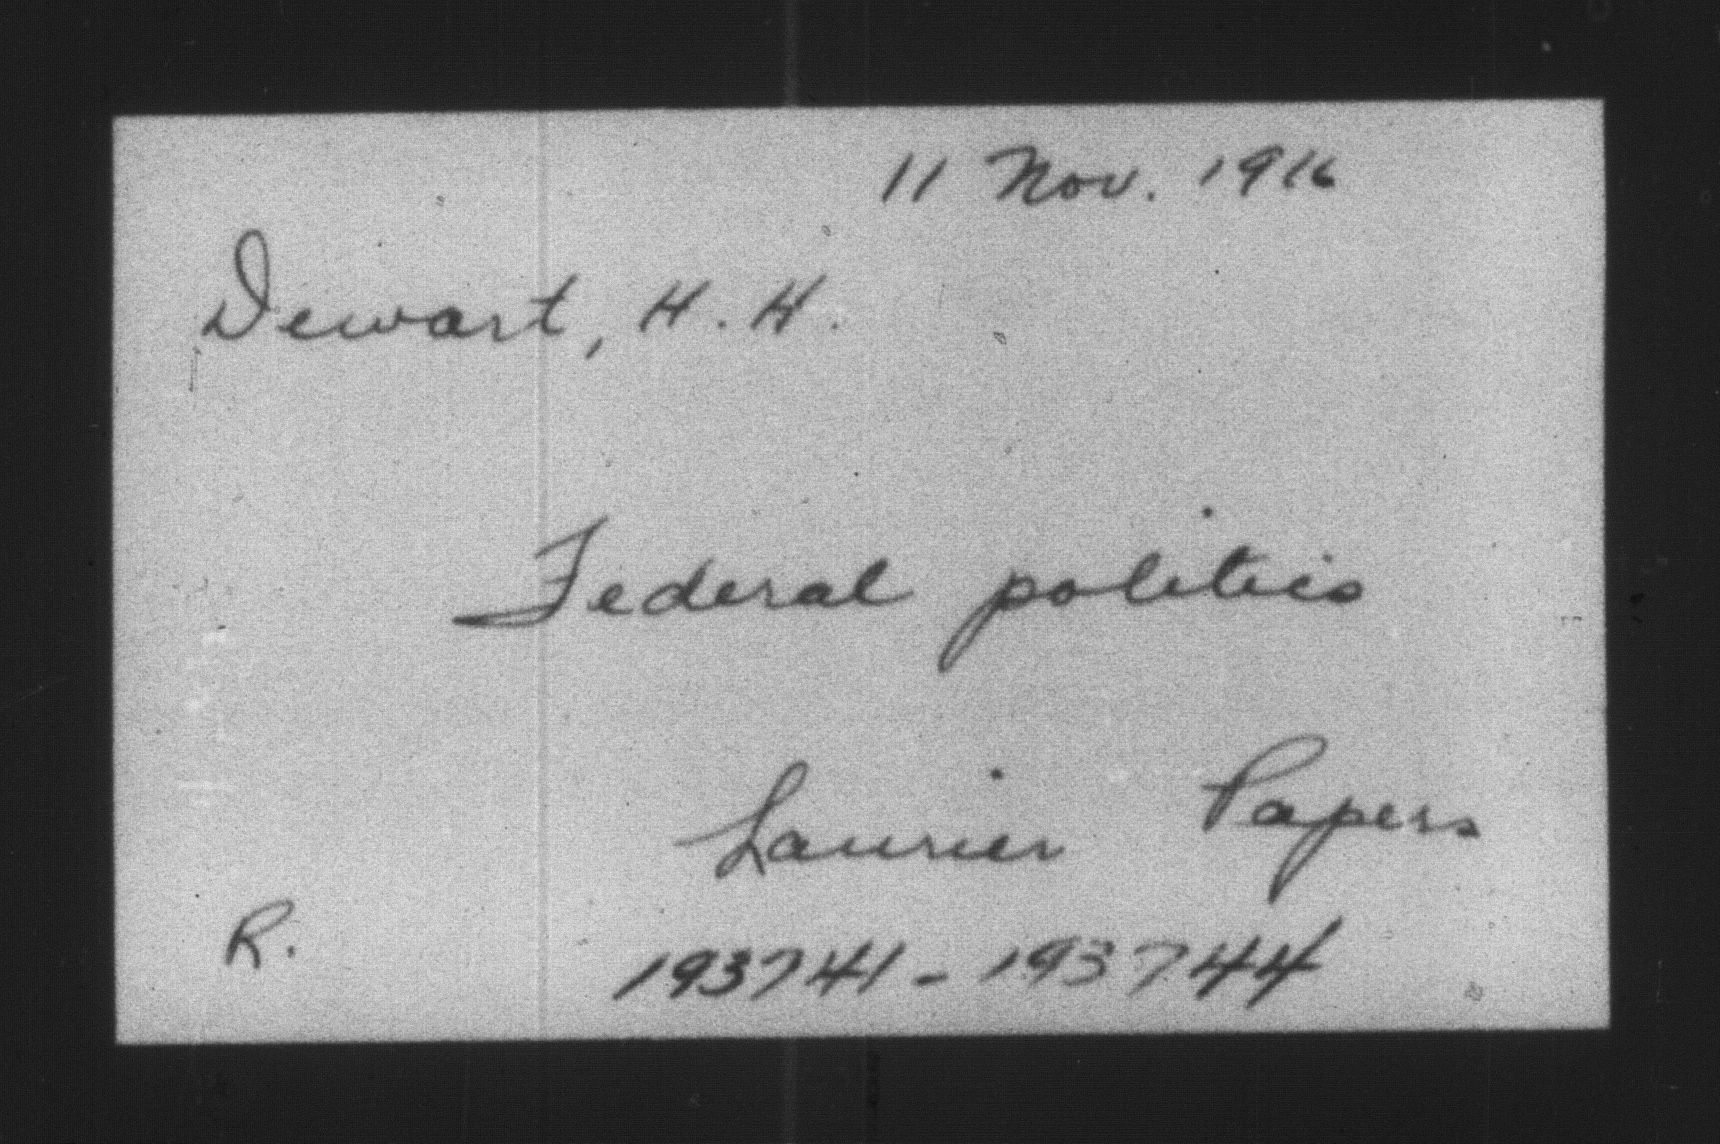 11 Nov. 1916
Dewart, H. H.
Federal politics
Laurier Papers
R. 193741-193744